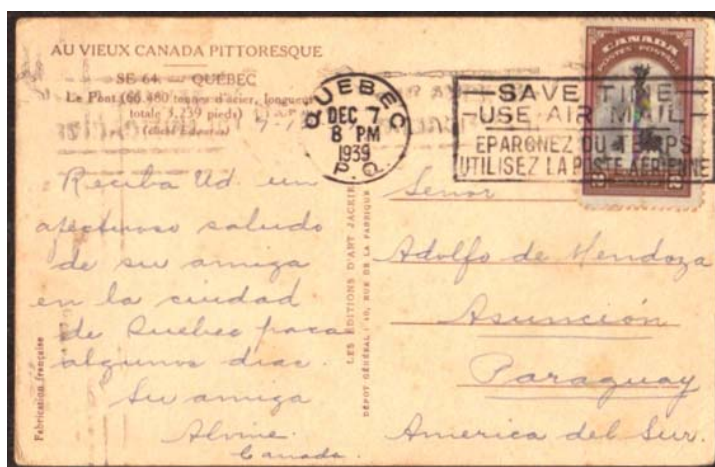 AU VIEUX CANADA PITTORESQUE
SE 64. — QUÉBEC
Le Pont (66.480 tonnes d'acier, longueur
totale 3.239 pieds)
(cliché
QUEBEC
DEC 7
8 PM
1939
P.Q.
SAVE TIME
USE AIR MAIL
EPARGNEZ DU TEMPS
UTILISEZ LA POSTE AERIENNE
CANADA
POSTES-POSTAGE
2
Reciba Ud un
afectuoso saludo
de su amiga
en la ciudad
de Quebec para
algunos dias.
Su amiga
Alvine.
Canada.
Fabrication française
LES EDITIONS D'ART
DÉPOT GÉNÉRAL : 40, RUE DE LA FABRIQUE
Senor
Adolfo de Mendoza
Asunción
Paraguay
America del Sur.